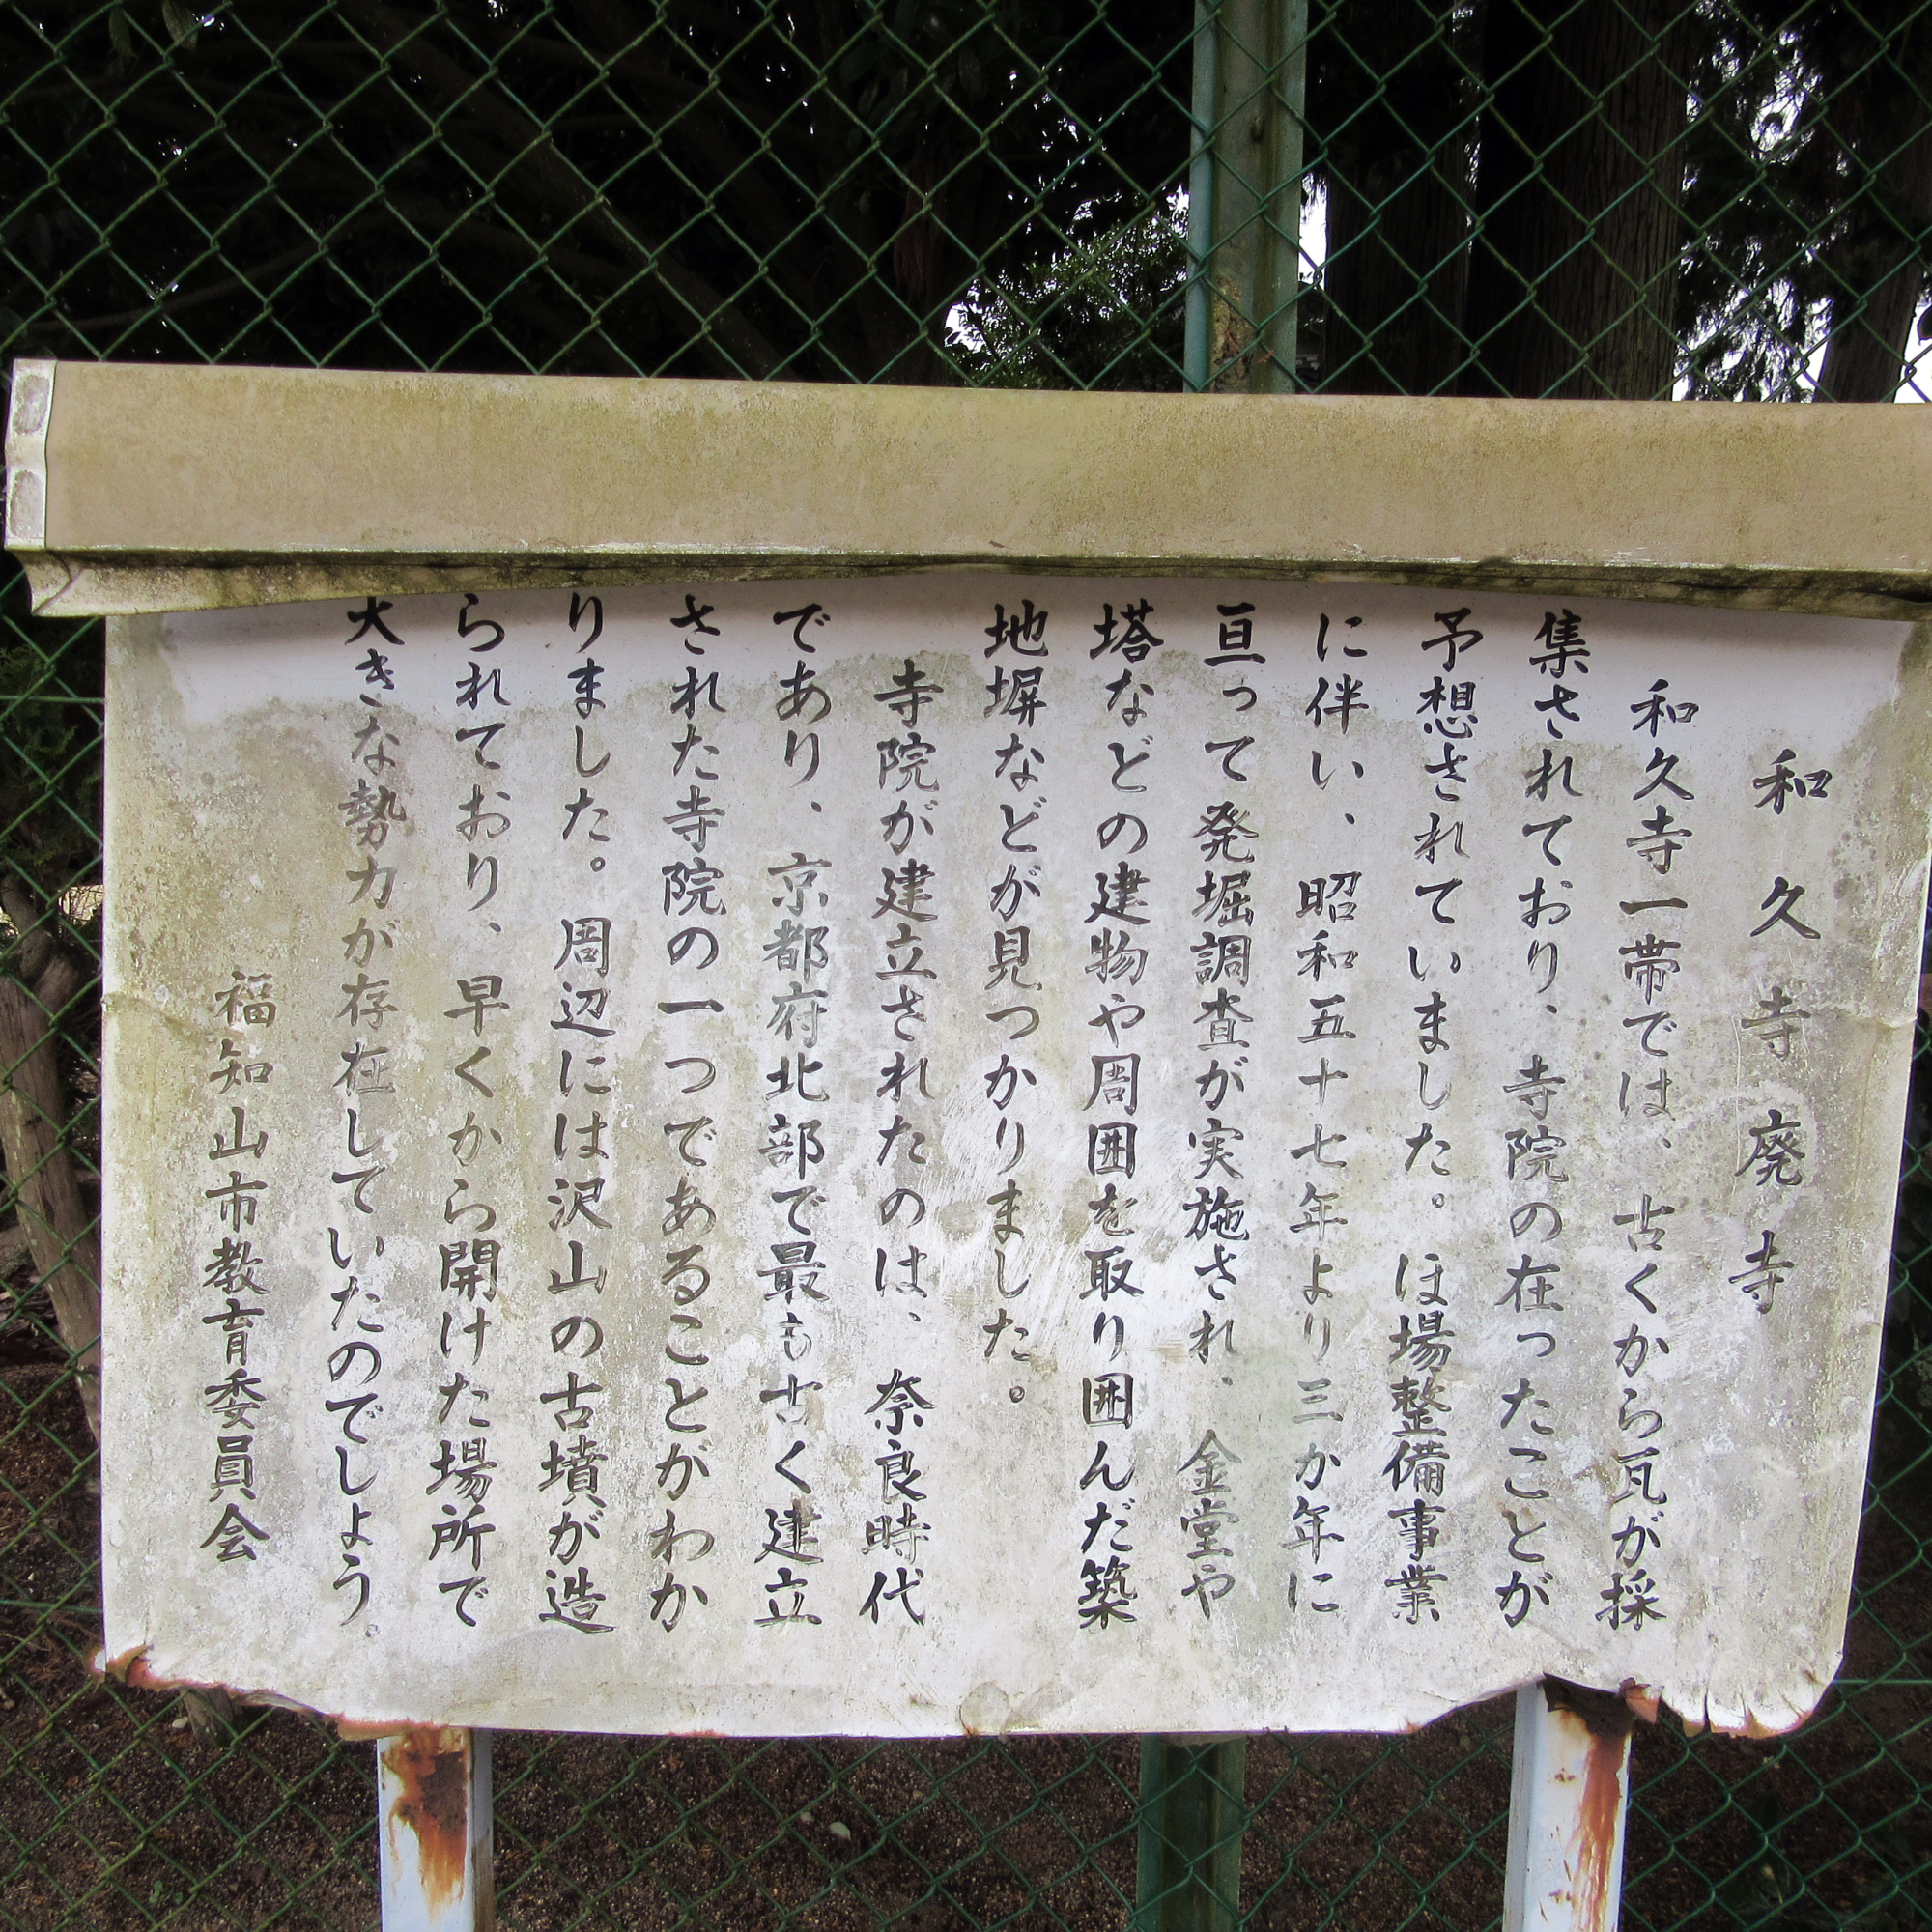 和久寺廃寺
和久寺一帯では、古くから瓦が採
集されており、寺院の在ったことが
予想されていました。ほ場整備事業
に伴い、昭和五十七年より三か年に
亘って発掘調査が実施され、金堂や
塔などの建物や周囲を取り囲んだ築
地塀などが見つかりました。
寺院が建立されたのは、奈良時代
であり、京都府北部で最も古く建立
された寺院の一つであることがわか
りました。周辺には沢山の古墳が造
られており、早くから開けた場所で
大きな勢力が存在していたのでしょう。
福知山市教育委員会